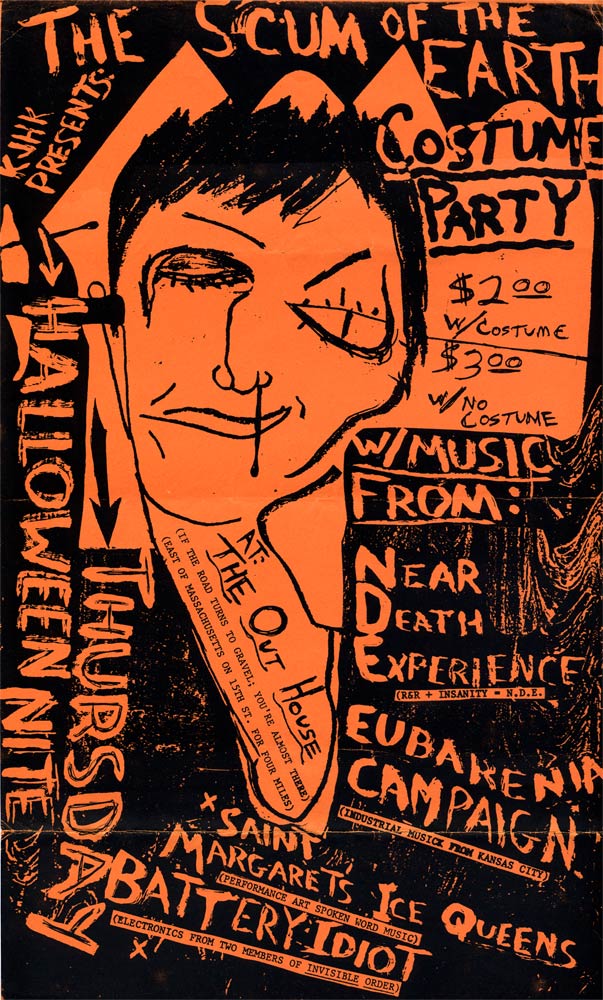 THE SCUM OF THE
EARTH
COSTUME
PARTY
KJHK
PRESENTS:
HALLOWEEN NITE
THURSDAY
$2.00
W/ COSTUME
$3.00
W/ NO
COSTUME
W/MUSIC
FROM:
NEAR
DEATH
EXPERIENCE
(R&R + INSANITY = N.D.E.
EUBARENIA
CAMPAIGN
(INDUSTRIAL MUSICK FROM KANSAS CITY)
AT:
THE OUT HOUSE
(IF THE ROAD TURNS TO GRAVEL, YOU'RE ALMOST THERE)
(EAST OF MASSACHUSETTS ON 15TH ST. FOR FOUR MILES)
X SAINT
MARGARETS ICE QUEENS
(PERFORMANCE ART SPOKEN WORD MUSIC)
BATTERY IDIOT
X (ELECTRONICS FROM TWO MEMBERS OF INVISIBLE ORDER)